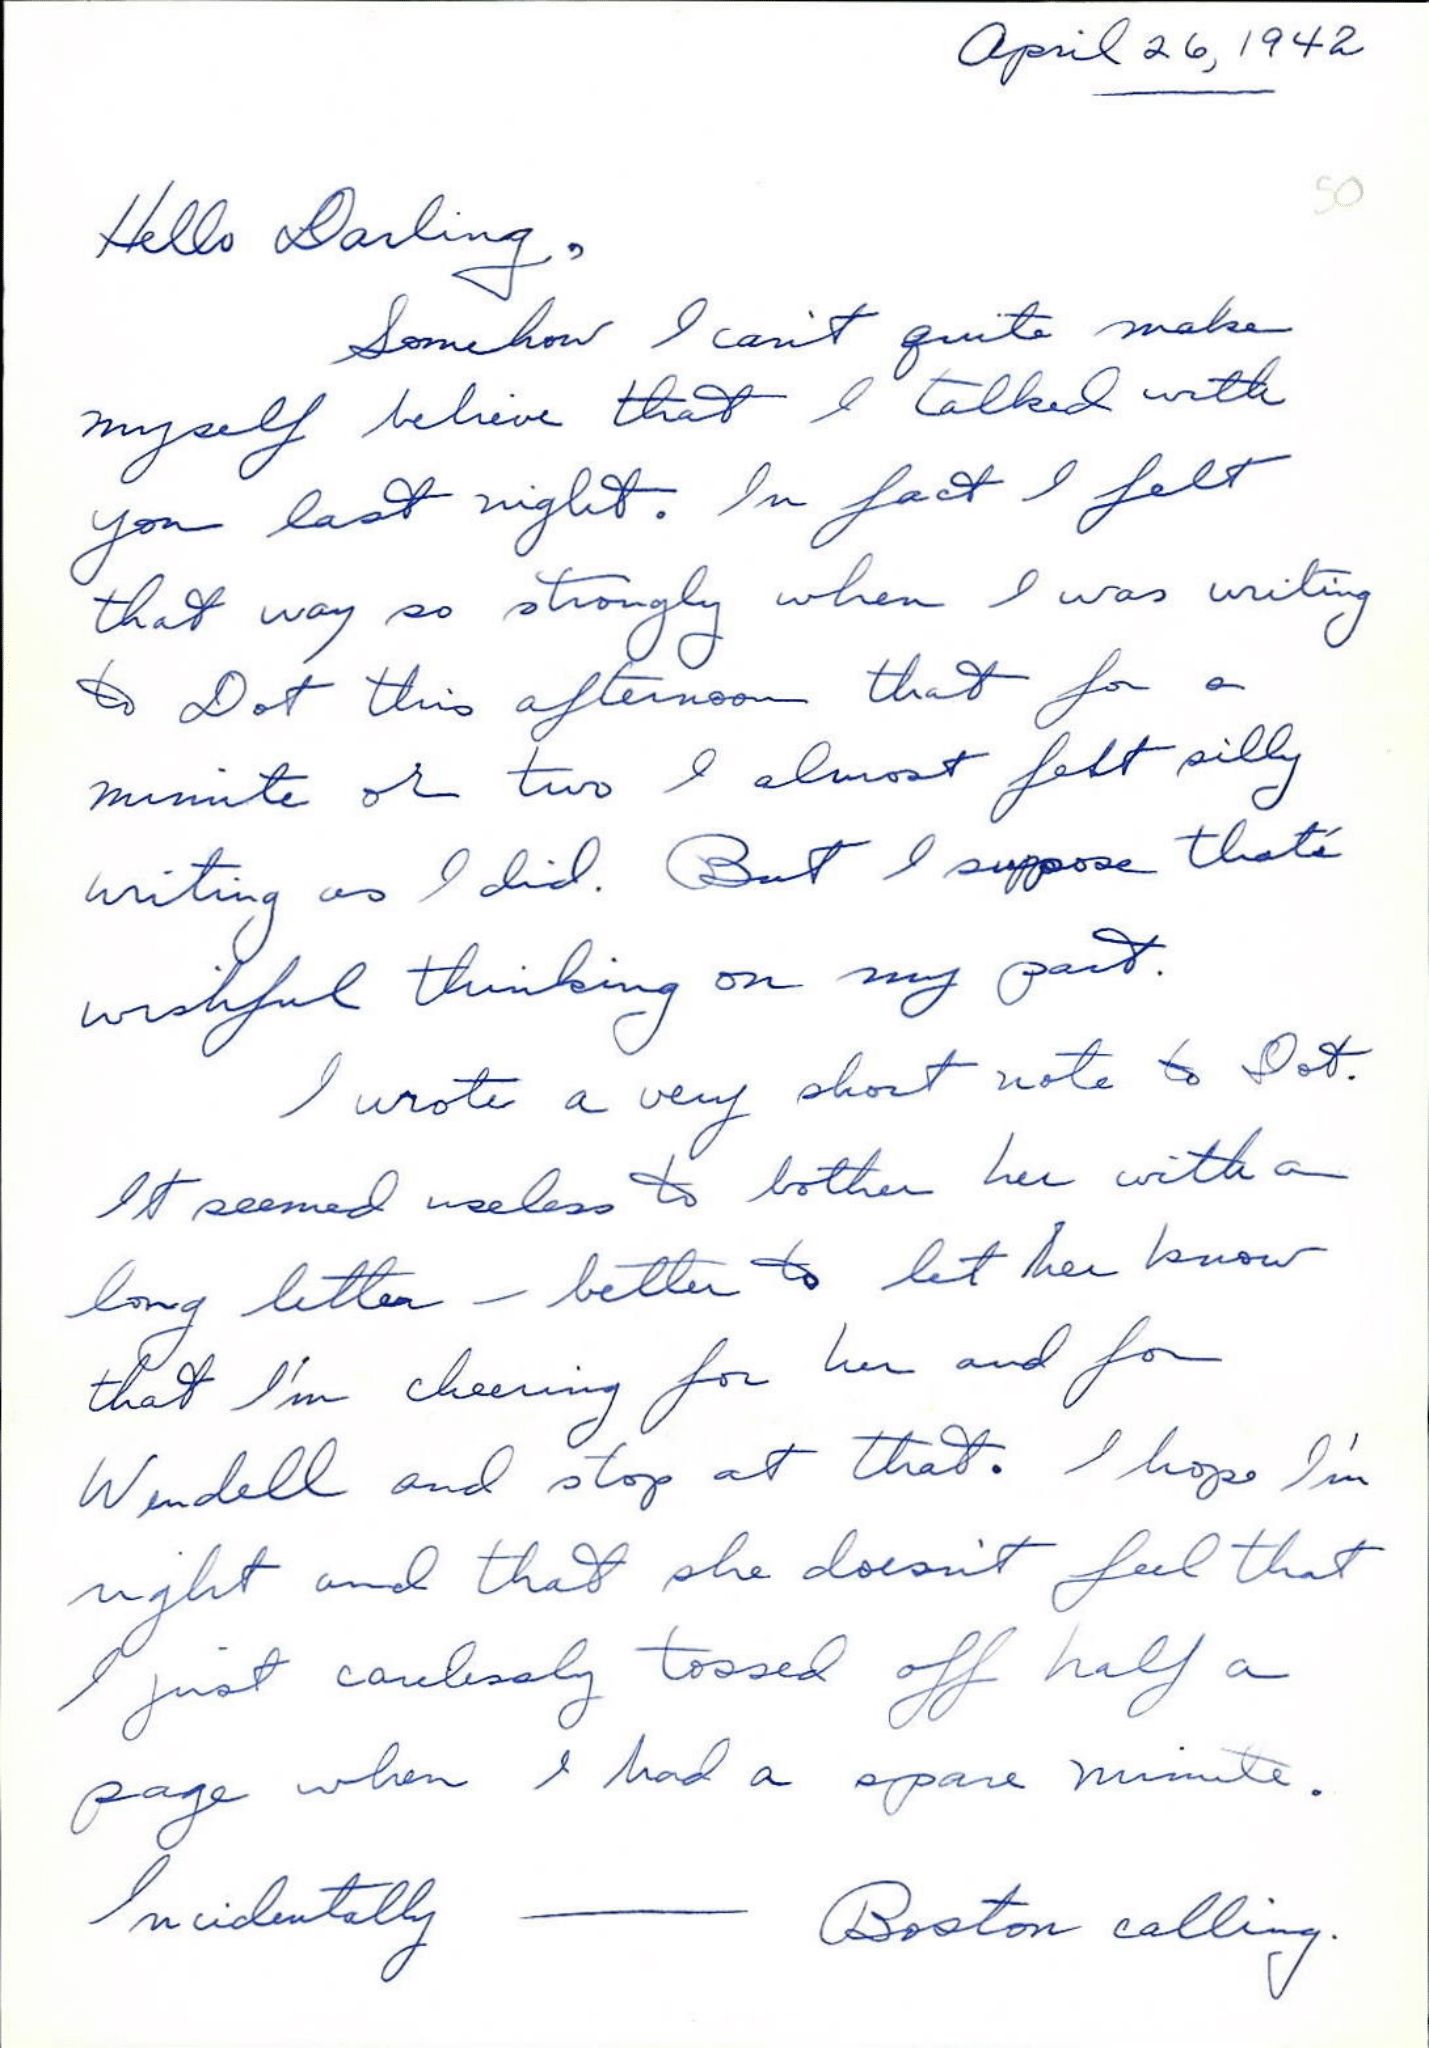 April 26, 1942
50
Hello Darling,
Somehow I can't quite make
myself believe that I talked with
you last night. In fact I felt
that way so strongly when I was writing
to Dot this afternoon that for a
minute or two I almost felt silly
writing as I did. But I suppose that's
wishful thinking on my part.
I wrote a very short note to Dot.
It seemed useless to bother her with a
long letter – better to let her know
that I'm cheering for her and for
Wendell and stop at that. I hope I'm
right and that she doesn't feel that
I just carelessly tossed off half a
page when I had a spare minute.
Incidentally —— Boston calling.